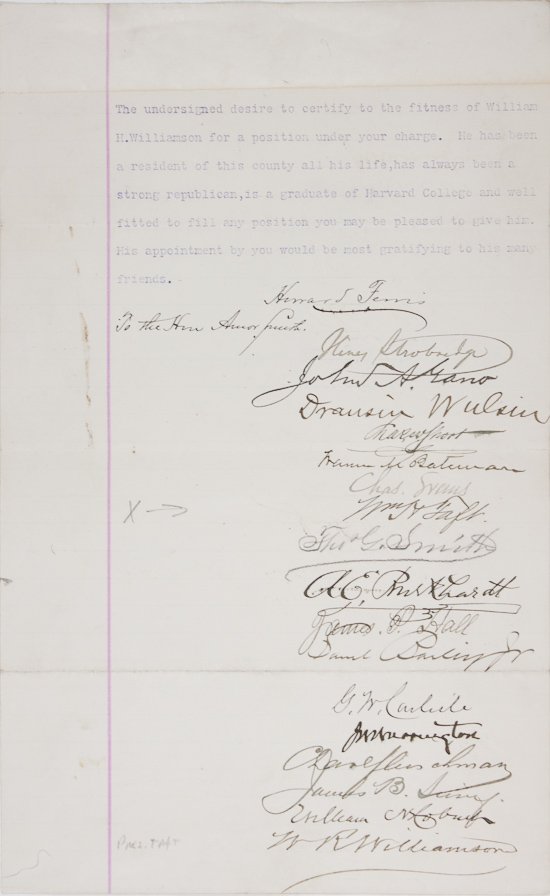 The undersigned desire to certify to the fitness of William
H.Williamson for a position under your charge. He has been
a resident of this county all his life,has always been a
strong republican,is a graduate of Harvard College and well
fitted to fill any position you may be pleased to give him.
His appointment by you would be most gratifying to his many
friends.
Howard Ferris
To the Hon Amor Smith.
Hines Strobridge
John A. Gano
Drausin Wulsin
Chas W Short
Bateman
Chas. Evans
X →
Wm H Taft.
Thos G. Smith
A.E. Burkhardt
James P. Hall
Jr
G. W. Carlisle
JW Warrington
Chas Fleischmann
James B.
William
W R Williamson
Pres. TAFT